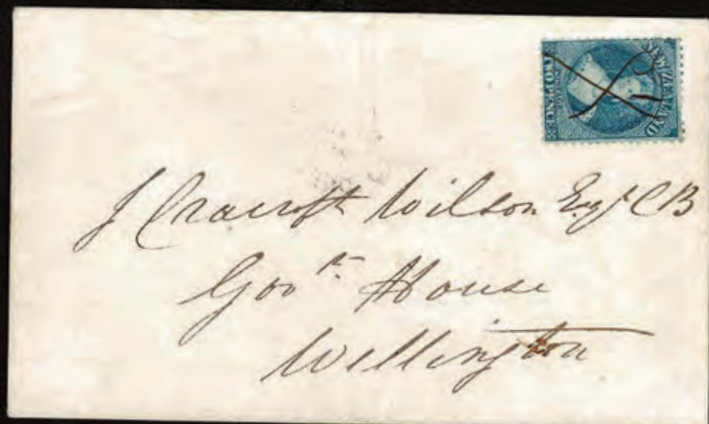 NEW ZEALAND
POSTAGE
TWO PENCE
J Cracroft Wilson Esqr. CB
Govt. House
Wellington